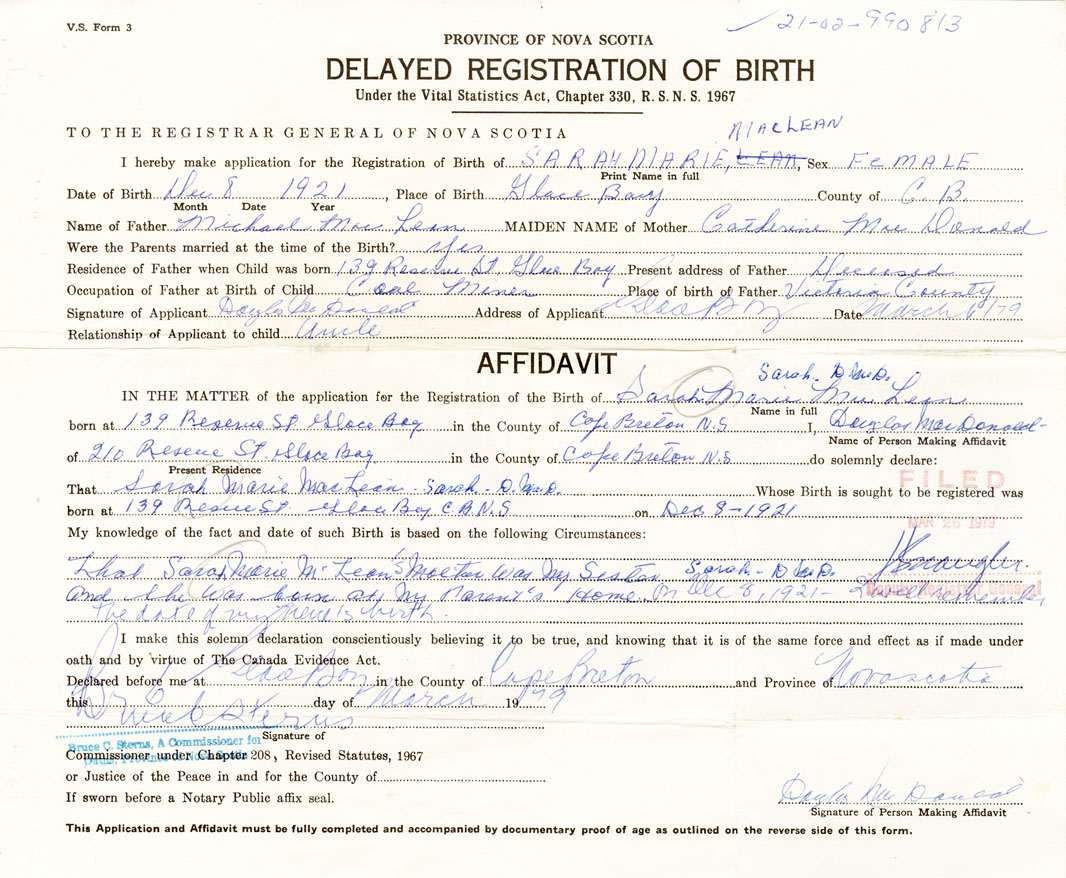 V.S. Form 3
21-02-990813
PROVINCE OF NOVA SCOTIA
DELAYED REGISTRATION OF BIRTH
Under the Vital Statistics Act, Chapter 330, R.S.N.S. 1967
TO THE REGISTRAR GENERAL OF NOVA SCOTIA
MACLEAN
I hereby make application for the Registration of Birth of SARAH MARIE, LEAN, Sex FEMALE
Print Name in full
Date of Birth Dec 8 1921, Place of Birth Glace Bay County of C.B.
Month Date Year
Name of Father Michael Mac Lean MAIDEN NAME of Mother Catherine Mac Donald
Were the Parents married at the time of the Birth? yes
Residence of Father when Child was born 139 Reserve St Glace Bay Present address of Father Deceased
Occupation of Father at Birth of Child Coal Miner Place of birth of Father Victoria County
Signature of Applicant Douglas MacDonald Address of Applicant Glace Bay Date March 79
Relationship of Applicant to child Uncle
AFFIDAVIT
Sarah - D. McD.
IN THE MATTER of the application for the Registration of the Birth of Sarah Marie Mac Lean
Name in full
born at 139 Reserve St. Glace Bay in the County of Cape Breton N.S I, Douglas MacDonald
Name of Person Making Affidavit
of 210 Reserve St. Glace Bay in the County of Cape Breton N.S do solemnly declare:
Present Residence
FILED
That Sarah Marie MacLean - Sarah - D. McD. Whose Birth is sought to be registered was
born at 139 Reserve St. Glace Bay C.B.N.S on Dec 8-1921
MAR 26 1979
My knowledge of the fact and date of such Birth is based on the following Circumstances:
that Sara Marie McLean's Moether was My Sester Sarah - D. McD.
and she was born at My Parent's Home on Dec 8, 1921 - I well remember
the date of my niece's birth.
I make this solemn declaration conscientiously believing it to be true, and knowing that it is of the same force and effect as if made under
oath and by virtue of The Canada Evidence Act.
Declared before me at Glace Bay in the County of Cape Breton and Province of Nova scotia
this day of March 1979
Bruce C Sterns
Signature of
Bruce C. Sterns, A Commissioner for
Commissioner under Chapter 208, Revised Statutes, 1967
or Justice of the Peace in and for the County of
If sworn before a Notary Public affix seal.
Douglas MacDonald
Signature of Person Making Affidavit
This Application and Affidavit must be fully completed and accompanied by documentary proof of age as outlined on the reverse side of this form.